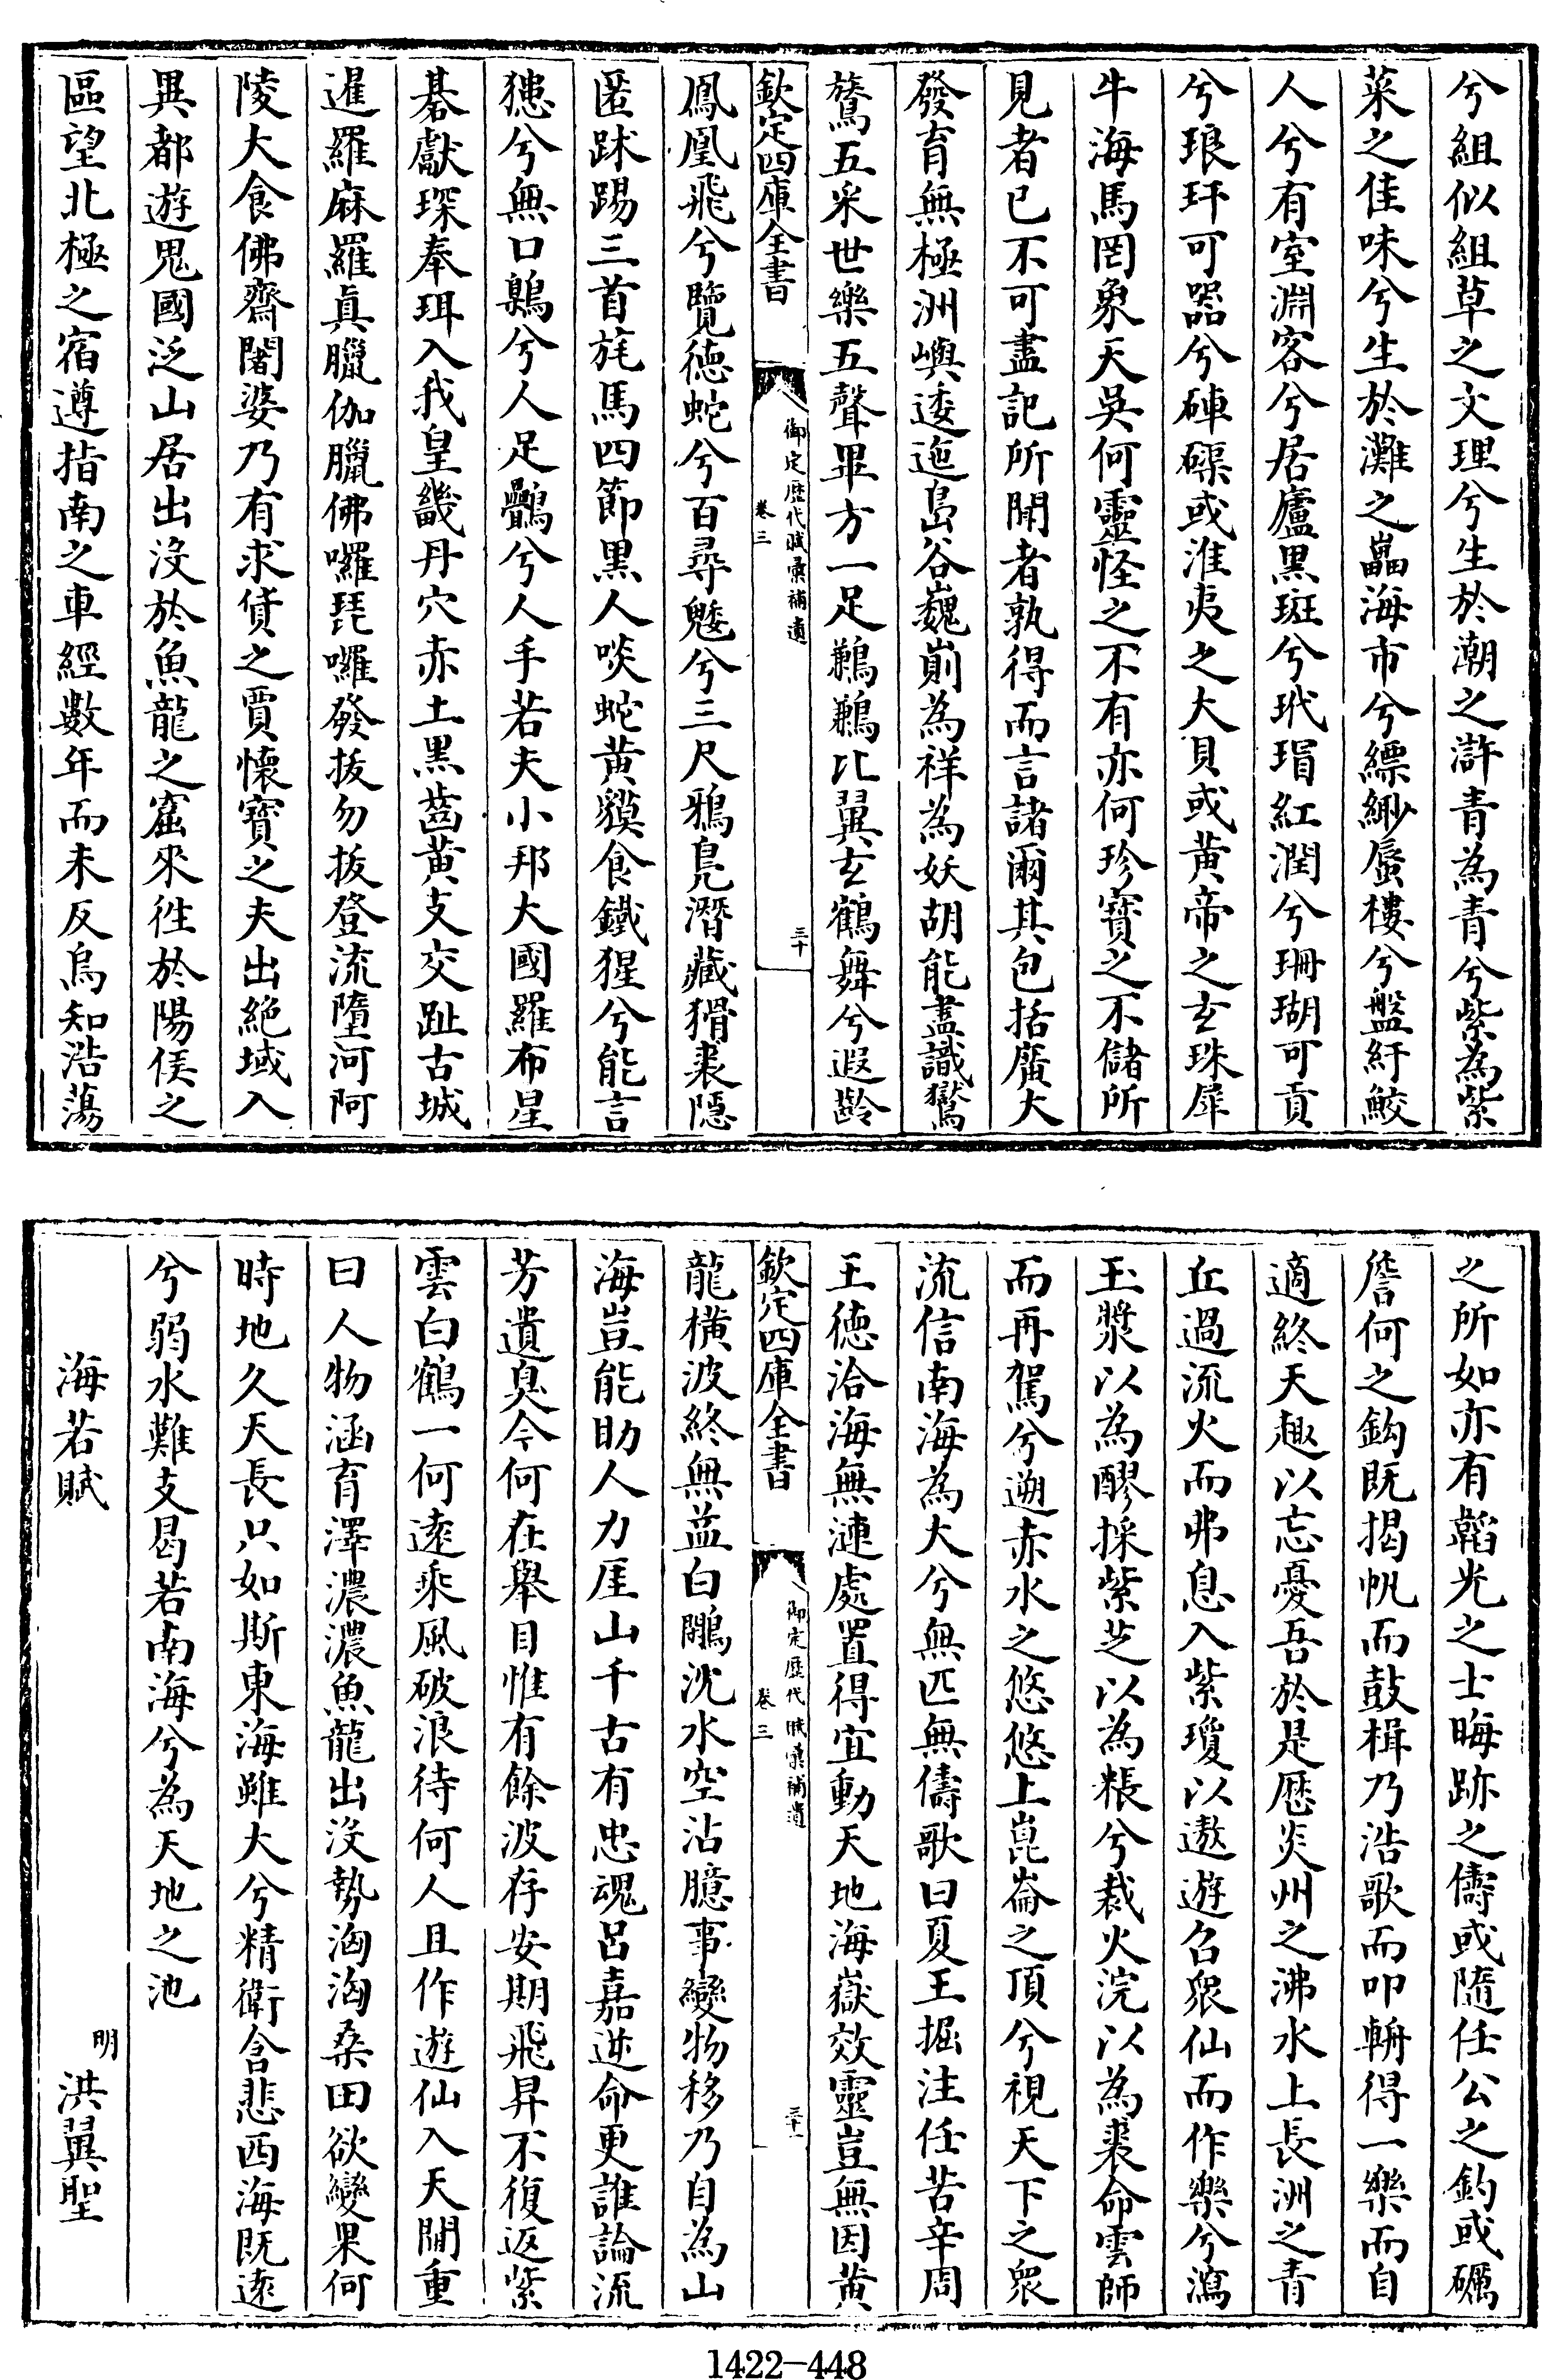 兮組似組草之文理兮生於潮之滸青為青兮紫為紫
菜之佳味兮生於灘之畾海市兮縹緲蜃樓兮盤紆鮫
人兮有室淵客兮居廬黒斑兮玳瑁紅潤兮珊瑚可貢
兮琅玕可器兮硨磲或淮夷之大貝或黄帝之玄珠犀
牛海馬罔象天吳何靈怪之不有亦何珍寳之不儲所
見者已不可盡記所聞者孰得而言諸爾其包括廣大
發育無極洲嶼逶迤島谷巍崱為祥為妖胡能盡識鸑
鷟五采世樂五聲畢方一足鶼鶼比翼玄鶴舞兮遐齡
欽定四庫全書
御定歴代賦彙補遺
卷三
三十
鳳凰飛兮覽徳蛇兮百尋魃兮三尺鴉鳧潛藏猾褢隠
匿踈踢三首旄馬四節黒人啖蛇黄貘食鐵猩兮能言
㹱兮無口鷍兮人足鸓兮人手若夫小邦大國羅布星
碁獻琛奉珥入我皇畿丹穴赤土黒齒黄支交趾古城
暹羅麻羅真臘伽臘佛囉琵囉發拔勿拔登流墮河阿
陵大食佛齋闍婆乃有求貨之賈懷寳之夫出絶域入
異都遊鬼國泛山居出沒於魚龍之窟來徃於陽侯之
區望北極之宿遵指南之車經數年而未反烏知浩蕩
之所如亦有韜光之士晦跡之儔或隨任公之釣或礪
詹何之鈎既揭帆而鼓楫乃浩歌而叩軿得一樂而自
適終天趣以忘憂吾於是歴炎州之沸水上長洲之青
丘過流火而弗息入紫瓊以遨遊召衆仙而作樂兮瀉
玉漿以為醪採紫芝以為粻兮裁火浣以為裘命雲師
而再駕兮遡赤水之悠悠上崑崙之頂兮視天下之衆
流信南海為大兮無匹無儔歌曰夏王掘注任苦辛周
王徳洽海無漣處置得宜動天地海嶽效靈豈無因黄
欽定四庫全書
御定歴代賦彙補遺
卷三
三十一
龍橫波終無益白鵰沈水空沾臆事變物移乃自為山
海豈能助人力厓山千古有忠魂呂嘉逆命更誰論流
芳遺臭今何在舉目惟有餘波存安期飛昇不復返紫
雲白鶴一何逺乘風破浪待何人且作遊仙入天閽重
曰人物涵育澤濃濃魚龍出沒勢洶洶桑田欲變果何
時地久天長只如斯東海雖大兮精衛含悲西海既逺
兮弱水難支曷若南海兮為天地之池
海若賦
明
洪翼聖
1422-448